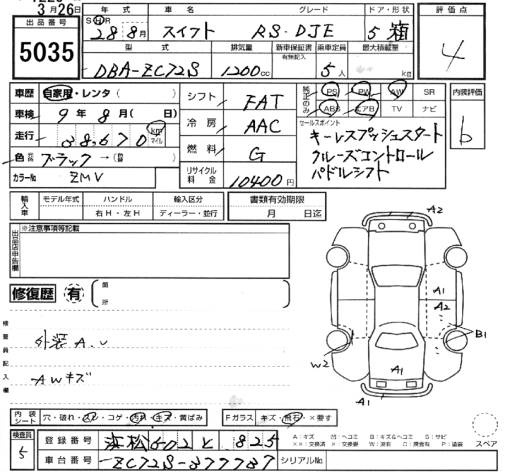 3月26日
出品番号 5035
年式 車名 グレード ドア・形状 評価点
28年8月 スイフト RS-DJE 5 箱 4
型式 排気量 新車保証書 有無記入 乗車定員 最大積載量
DBA-ZC72S 1200cc 5人 kg
車歴 自家用・レンタ( )
車検 9年8月( 日)
走行 38,670 km マイル
色 ブラック→( )
カラー№ ZMV
シフト FAT
冷房 AAC
燃料 G
リサイクル料金 10400円
純正のみ PS PW AW SR
ABS エアB TV ナビ
内装評価 b
セールスポイント
キーレスプッシュスタート
クルーズコントロール
パドルシフト
輸入車 モデル年式 ハンドル 輸入区分
右H・左H ディーラー・並行
書類有効期限
月 日迄
出品店申告欄 ※注意事項等記載
修復歴 有 箇所
検査員記入欄
外装A.U
AWキズ
A2
A1
A2
B1
W2
A1
A1
内装シート 穴・破れ・スレ・コゲ・汚れ・キズ・黄ばみ
Fガラス キズ・飛石・×要す
検査員 5
登録番号 浜松502と825
車台番号 ZC72S-377737 シリアル№
A:キズ M:ヘコミ B:キズ&ヘコミ S:サビ
スペア